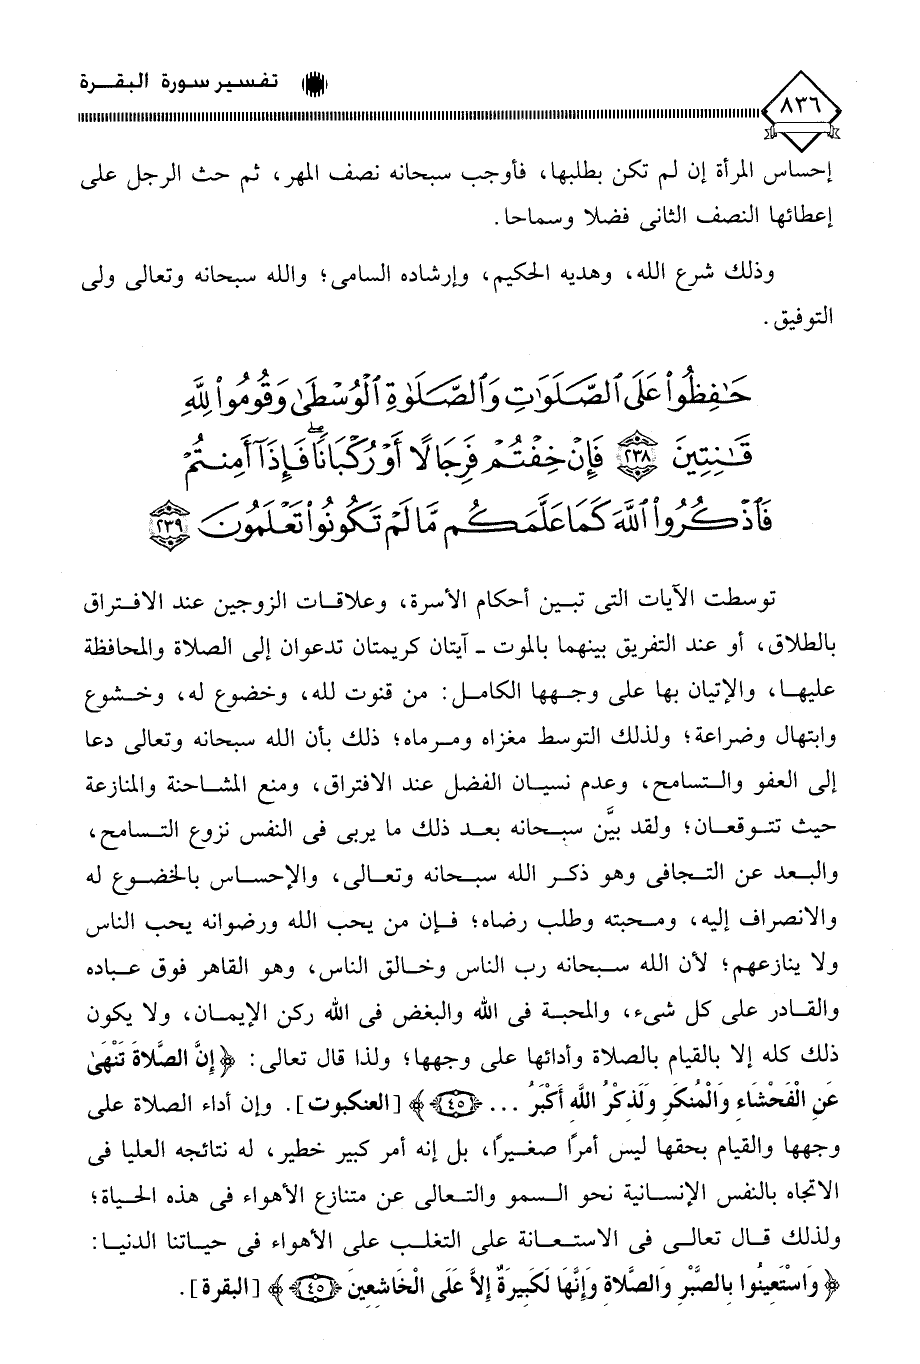 تفسير سورة البقرة
٨٣٦
إحساس المرأة إن لم تكن بطلبها، فأوجب سبحانه نصف المهر، ثم حث الرجل على
إعطائها النصف الثانى فضلا وسماحا.
وذلك شرع الله، وهديه الحكيم، وإرشاده السامى؛ والله سبحانه وتعالى ولى
التوفيق.
حَٰفِظُوا۟ عَلَى ٱلصَّلَوَٰتِ وَٱلصَّلَوٰةِ ٱلْوُسْطَىٰ وَقُومُوا۟ لِلَّهِ
قَٰنِتِينَ ٢٣٨ فَإِنْ خِفْتُمْ فَرِجَالًا أَوْ رُكْبَانًا ۖ فَإِذَآ أَمِنتُمْ
فَٱذْكُرُوا۟ ٱللَّهَ كَمَا عَلَّمَكُم مَّا لَمْ تَكُونُوا۟ تَعْلَمُونَ ٢٣٩
توسطت الآيات التى تبين أحكام الأسرة، وعلاقات الزوجين عند الافتراق
بالطلاق، أو عند التفريق بينهما بالموت ـ آيتان كريمتان تدعوان إلى الصلاة والمحافظة
عليها، والإتيان بها على وجهها الكامل: من قنوت لله، وخضوع له، وخشوع
وابتهال وضراعة؛ ولذلك التوسط مغزاه ومرماه؛ ذلك بأن الله سبحانه وتعالى دعا
إلى العفو والتسامح، وعدم نسيان الفضل عند الافتراق، ومنع المشاحنة والمنازعة
حيث تتوقعان؛ ولقد بيَّن سبحانه بعد ذلك ما يربى فى النفس نزوع التسامح،
والبعد عن التجافى وهو ذكر الله سبحانه وتعالى، والإحساس بالخضوع له
والانصراف إليه، ومحبته وطلب رضاه؛ فإن من يحب الله ورضوانه يحب الناس
ولا ينازعهم؛ لأن الله سبحانه رب الناس وخالق الناس، وهو القاهر فوق عباده
والقادر على كل شىء، والمحبة فى الله والبغض فى الله ركن الإيمان، ولا يكون
ذلك كله إلا بالقيام بالصلاة وأدائها على وجهها؛ ولذا قال تعالى: ﴿إِنَّ الصَّلاةَ تَنْهَىٰ
عَنِ الْفَحْشَاءِ وَالْمُنكَرِ وَلَذِكْرُ اللَّهِ أَكْبَرُ ... ﴿٤٥﴾﴾ [العنكبوت]. وإن أداء الصلاة على
وجهها والقيام بحقها ليس أمرًا صغيرًا، بل إنه أمر كبير خطير، له نتائجه العليا فى
الاتجاه بالنفس الإنسانية نحو السمو والتعالى عن متنازع الأهواء فى هذه الحياة؛
ولذلك قال تعالى فى الاستعانة على التغلب على الأهواء فى حياتنا الدنيا:
﴿وَاسْتَعِينُوا بِالصَّبْرِ وَالصَّلاةِ وَإِنَّهَا لَكَبِيرَةٌ إِلاَّ عَلَى الْخَاشِعِينَ ﴿٤٥﴾﴾ [البقرة].